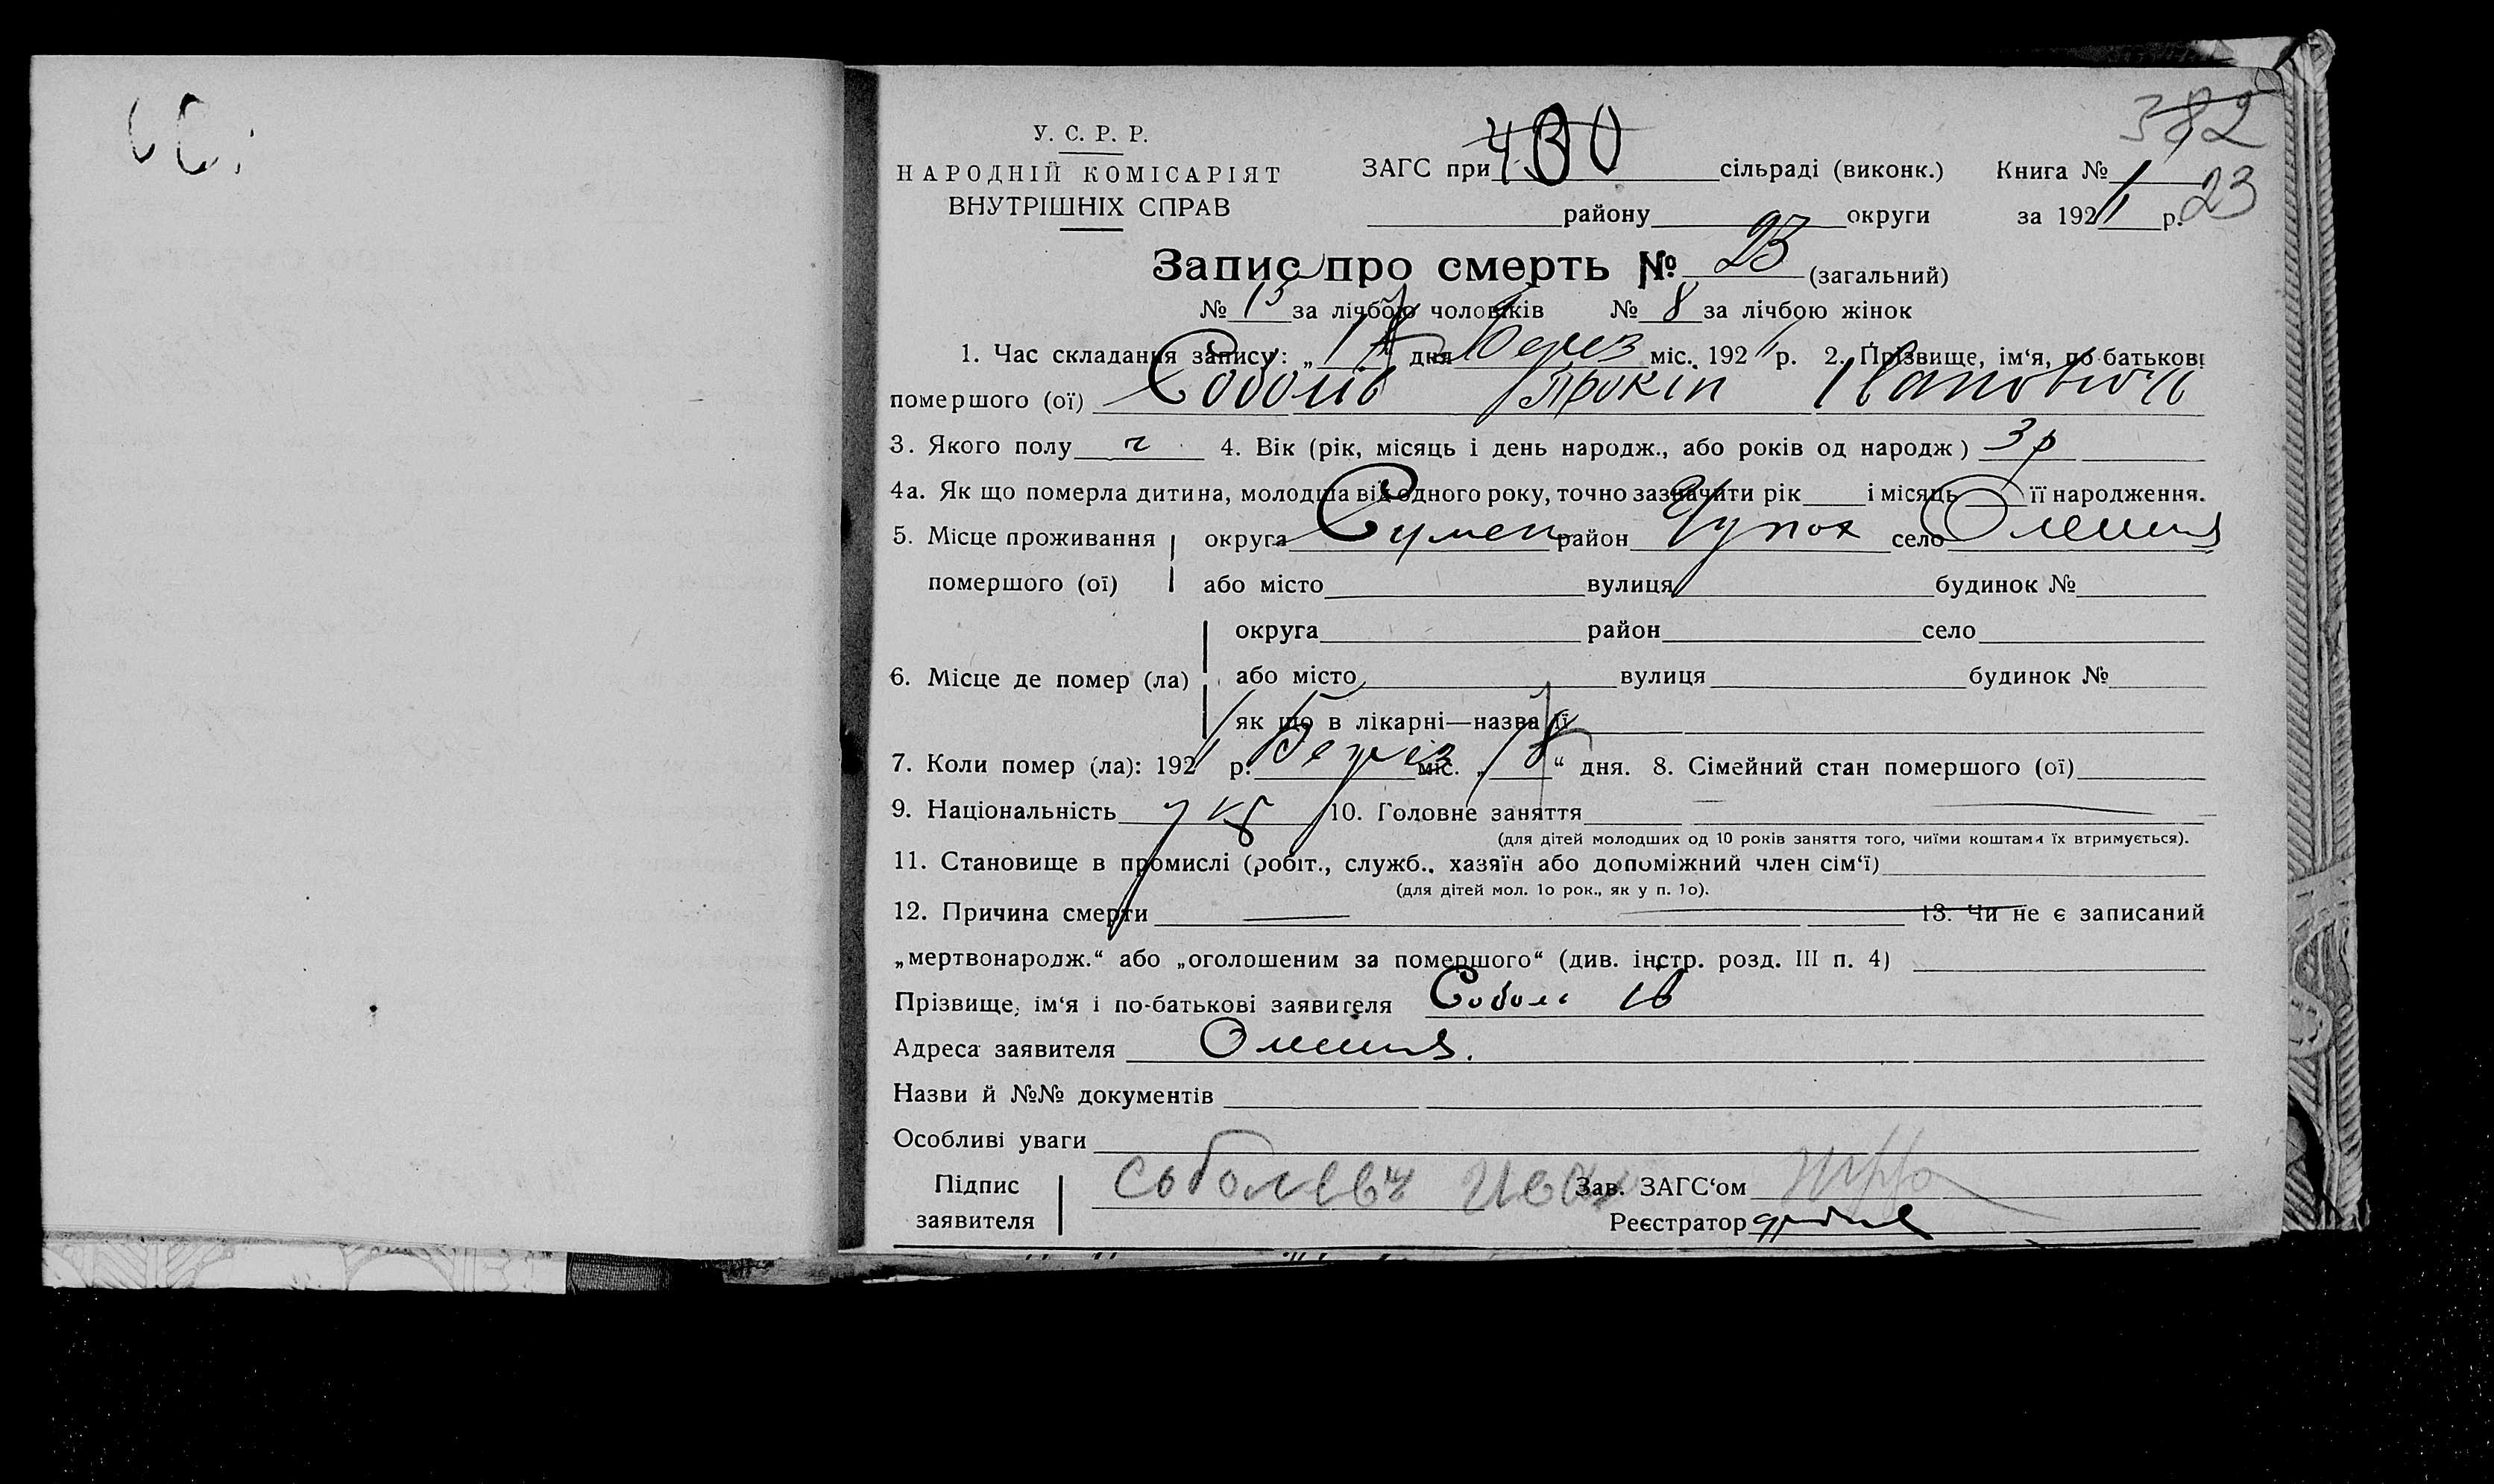 382
У. С. Р. Р.
НАРОДНІЙ КОМІСАРІЯТ
ВНУТРІШНІХ СПРАВ
ЗАГС при 430 сільраді (виконк.) Книга № 1
району округи за 192 р. 23
Запис про смерть № 23 (загальний)
№ 15 за лічбою чоловіків № 8 за лічбою жінок
1. Час складання запису: „ дня Берез міс. 192 р. 2. Прізвище, ім‘я, по-батькові
помершого (ої) Соболів Прокіп Іванович
3. Якого полу ч 4. Вік (рік, місяць і день народж., або років од народж) 3 р
4а. Як що померла дитина, молодша від одного року, точно зазначити рік і місяць її народження.
5. Місце проживання округа Сумск район Чупах село Олешня
помершого (ої) або місто вулиця будинок №
округа район село
6. Місце де помер (ла) або місто вулиця будинок №
як що в лікарні—назва її
7. Коли помер (ла): 192 р. Берез міс. „ “ дня. 8. Сімейний стан помершого (ої)
9. Національність укр 10. Головне заняття
(для дітей молодших од 10 років заняття того, чиїми коштами їх втримується).
11. Становище в промислі (робіт., служб., хазяїн або допоміжний член сім‘ї)
(для дітей мол. 1о рок., як у п. 1о).
12. Причина смерти 13. Чи не є записаний
„мертвонародж.“ або „оголошеним за помершого“ (див. інстр. розд. III п. 4)
Прізвище, ім‘я і по-батькові заявителя Соболі Ів
Адреса заявителя Олешня.
Назви й №№ документів
Особливі уваги
Підпис заявителя Соболевъ Иван Зав. ЗАГС‘ом
Реєстратор